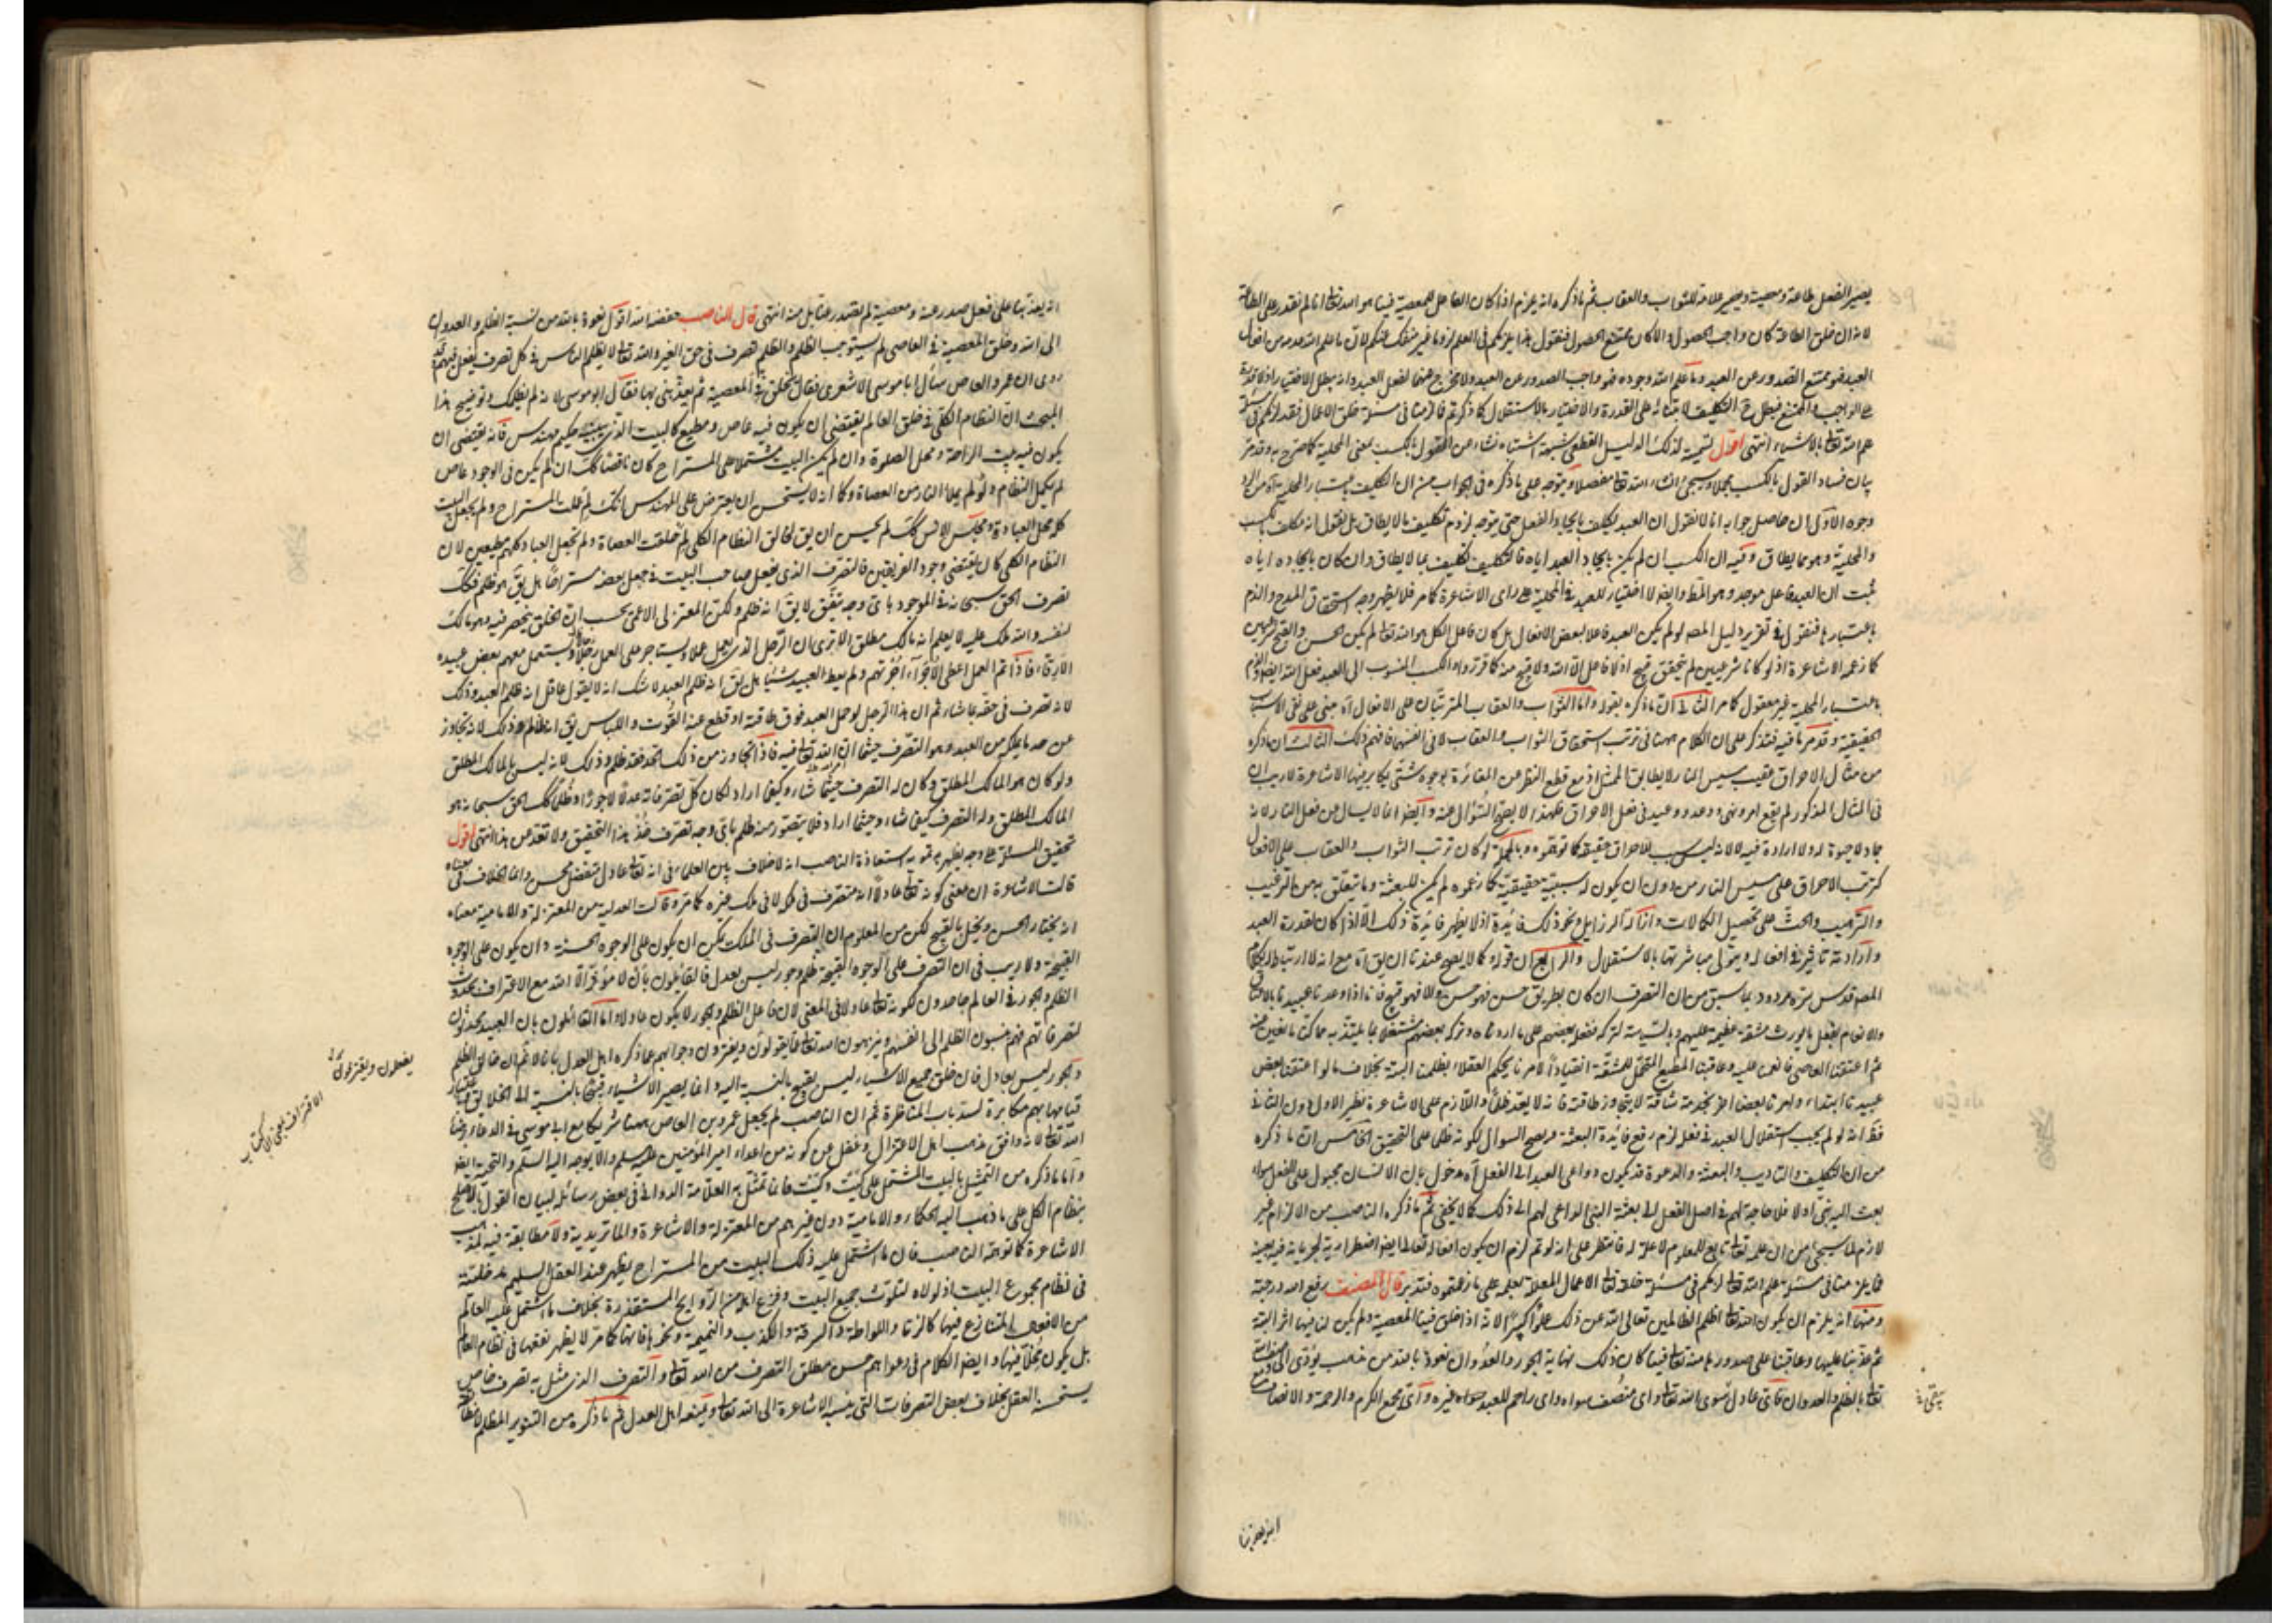 يصير الفعل طاعة ومعصية ويصير علامة للثواب والعقاب ثم ما ذكره انه يلزم اذا كان الفاعل للمعصية فينا هو الله تعالى انا لم نقدر على الطاعة
لانه ان خلق الطاعة كان واجب الحصول والا كان ممتنع الحصول فنقول هذا يلزمكم في العلم لزوما غير منفك عنكم لان ما علم الله عدمه من افعال
العبد فهو ممتنع الصدور عن العبد وما علم الله وجوده فهو واجب الصدور عن العبد ولا مخرج عنهما لفعل العبد وانه يبطل الاختيار اذ لا قدرة
على الواجب والممتنع فيبطل ح التكليف لابتنائه على القدرة والاختيار بالاستقلال كما ذكرتم فما لزمنا في مسئلة خلق الاعمال فقد لزمكم في مسئلة
علم الله تعالى بالاشياء انتهى اقول تسمية لذلك الدليل القطعي شبهة اشتباه نشاء من القول بالكسب بمعنى المحلية كما صرح به وقد مر
بيان فساد القول بالكسب مجملا وسيجئ انشاء الله تعالى مفصلا ويتوجه على ما ذكره في الجواب من ان التكليف باعتبار المحلية آه من الرد
وجوه الاول ان حاصل جوابه انا لا نقول ان العبد يكلف بايجاد الفعل حتى يتوجه لزوم تكليف ما لا يطاق بل نقول انه مكلف بالكسب
والمحلية وهو مما يطاق وفيه ان الكسب ان لم يكن بايجاد العبد اياه فالتكليف تكليف بما لا يطاق وان كان بايجاده اياه
ثبت ان العبد فاعل موجد وهو المط وايضا لا اختيار للعبد في المحلية على راى الاشاعرة كما مر فلا يظهر وجه استحقاق المدح والذم
باعتبارها فنقول في تقرير دليل المصـ لو لم يكن العبد فاعلا لبعض الافعال بل كان فاعل الكل هو الله تعالى لم يكن الحسن والقبح شرعيين
كما زعمه الاشاعرة اذ لو كانا شرعيين لم يتحقق قبيح اذ لا فاعل الا الله ولا قبيح منه كما قرروا والكسب المنسوب الى العبد فعل الله ايضا والذم
باعتبار المحلية غير معقول كما مر الثاني ان ما ذكره بقوله واما الثواب والعقاب المترتبان على الافعال آه مبنى على نفى الاسباب
الحقيقية وقد مر ما فيه فتذكر على ان الكلام ههنا في ترتب استحقاق الثواب والعقاب لا في انفسهما فافهم ذلك الثالث ان ما ذكره
من مثال الاحراق عقيب مسيس النار لا يطابق الممثل اذ مع قطع النظر عن المغايرة بوجوه شتى يكابر فيها الاشاعرة لا ريب ان
في المثال المذكور لم يقع امر ونهى ووعد ووعيد في فعل الاحراق فلهذا لا يصح السؤال عنه وايضا انما لا يسال عن فعل النار لانه
جماد لا حيوة له ولا ارادة فيه لا لانه ليس سبب الاحراق حقيقة كما توهموه وبالجملة لو كان ترتب الثواب والعقاب على الافعال
كترتب الاحراق على مسيس النار من دون ان يكون له سببية حقيقية كما زعموه لم يكن للبعثة وما يتعلق به من الترغيب
والترهيب والحث على تحصيل الكمالات وازالة الرزايل ونحو ذلك فائدة اذ لا يظهر فائدة ذلك الا اذا كان لقدرة العبد
وارادته تاثير في افعاله ويتولى مباشرتها بالاستقلال والرابع ان قوله كما لا يصح عندنا ان يق آه مع انه لا ارتباط له بكلام
المصـ قدس سره مردود بما سبق من ان التصرف ان كان بطريق حسن فهو حسن والا فهو قبيح فانا اذا وعدنا عبيدنا بالاعتاق
والانعام بفعل ما يورث مشقة عظيمة عليهم وبالسياسة لتركه ففعل بعضهم على ما اردناه وتركه بعضهم مشتغلا بما يلتذ به مما كنا مانعين عنه
ثم اعتقنا العاصى فانعمنا عليه وعاقبنا المطيع المتحمل للمشقة انقيادا لامرنا يحكم العقلاء بظلمنا البتة بخلاف ما لو اعتقنا بعض
عبيدنا ابتداء وامرنا بعضا اخر بخدمة شاقة لا يتجاوز طاقته فانه لا يعد ظلما واللازم على الاشاعرة نظير الاول دون الثاني
فظ انه لو لم يجب استقلال العبد في فعل لزم رفع فائدة البعثة وبصح السوال لكونه ظلما على التحقيق الخامس ان ما ذكره
من ان التكليف والتاديب والبعثة والدعوة قد يكون دواعى العبد الى الفعل آه مدخول بان الانسان مجبول على الفعل سواء
بعث اليه نبى او لا فلا حاجة لهم في اصل الفعل الى بعثة النبى الداعى لهم الى ذلك كما لا يخفى ثم ما ذكره الناصب من الالزام غير
لازم لما سيجئ من ان علمه تعالى تابع للمعلوم لا علة له فانتظر على انه لو تم لزم ان يكون افعاله تعالى ايضا اضطرارية لجريانه فيه بعينه
فما يلزمنا في مسئلة علم الله تعالى لزمكم في مسئلة خلقه تعالى الاعمال المعللة بعلمه على ما زعمتموه فتدبر قال المصنف رفع الله درجته
ومنها انه يلزم ان يكون الله تعالى اظلم الظالمين تعالى الله عن ذلك علوا كبيرا لانه اذا خلق فينا المعصية ولم يكن لنا فيها اثر البتة
ثم عذبنا عليها وعاقبنا على صدورها منه تعالى فينا كان ذلك نهاية الجور والعدوان نعوذ بالله من مذهب يؤدى الى وصف الله
تعالى بالظلم والعدوان فاى عادل سوى الله تعالى واى منصف سواه واى راحم للعبد سواه غيره واى مجمع الكرم والرحمة والانصاف
يبقى
انه يعذبنا
انه يعذبنا على فعل صدر عنه ومعصية لم تصدر عنا بل منه انتهى قال الناصب خفضه الله اقول نعوذ بالله من نسبة الظلم والعدوان
الى الله وخلق المعصية في العاصى لم يستوجب الظلم والظلم تصرف في حق الغير والله تعالى لا يظلم الناس في كل تصرف يفعل فيهم وقد
روى ان عمرو العاص سأل ابا موسى الاشعرى فقال يخلق في المعصية ثم يعذبنى بها فقال ابو موسى لانه لم يظلمك وتوضيح هذا
المبحث ان النظام الكلى في خلق العالم يقتضى ان يكون فيه عاص ومطيع كالبيت الذى يبنيه حكيم مهندس فانه يقتضى ان
يكون فيه بيت الراحة ومحل الصلوة وان لم يكن البيت مشتملا على المستراح كان ناقصا كك ان لم يكن في الوجود عاص
لم يكمل النظام ولو لم يملأ النار من العصاة وكما انه لا يستحسن ان يعترض على المهندس بانك لم عملت المستراح ولم يجعل البيت
كله محل العبادة ومجلس الانس كك لم يحسن ان يق لخالق النظام الكلى لم خلقت العصاة ولم تجعل العباد كلهم مطيعين لان
النظام الكلى كان يقتضى وجود الفريقين فالتصرف الذى يفعل صاحب البيت في جعل بعضه مستراحا هل يق هو ظلم فكك
تصرف الحق سبحانه في الموجود باى وجه يتفق لا يق انه ظلم ولكن المعتزلى الاعمى يحسب ان الخلق ينحصر فيه وهو مالك
لنفسه والله ملك عليه لا يعلم انه مالك مطلق الا ترى ان الرجل الذى يعمل عملا ويستاجر على العمل رجالا ويستعمل معهم بعض عبيده
الارقاء فاذا تم العمل اعطى الأجراء اجرتهم ولم يعط العبيد شيئا هل يق انه ظلم العبيد لا شك انه لا يقول عاقل انه ظلم العبد وذلك
لانه تصرف في حقه بما شاء ثم ان هذا الرجل لو حمل العبد فوق طاقته او قطع عنه القوت واللباس يق انه ظالم وذلك لانه تجاوز
عن حد ما يملكه من العبد وهو التصرف حيثما اذن الله تعالى فيه فاذا تجاوز من ذلك الحد فقد ظلم وذلك لانه ليس بالمالك المطلق
ولو كان هو المالك المطلق وكان له التصرف حيثما شاء وكيفما اراد لكان كل تصرفاته عدلا لا جورا وظلما كك الحق سبحانه هو
المالك المطلق وله التصرف كيفما شاء وحيثما اراد فلا يتصور منه ظلم باى وجه تصرف فخذ هذا التحقيق ولا تعد من هذا انتهى اقول
تحقيق المسئلة على وجه يظهر به تمويه استعاذة الناصب انه لا خلاف بين العلماء في انه تعالى عادل متفضل محسن وانما الخلاف في معناه
قالت الاشاعرة ان معنى كونه تعالى عادلا انه متصرف في ملكه لا في ملك غيره كما مر وقالت العدلية من المعتزلة والامامية معناه
انه يختار الحسن ويخل بالقبيح لكن من المعلوم ان التصرف في الملك يمكن ان يكون على الوجوه الحسنة وان يكون على الوجوه
القبيحة ولا ريب في ان التصرف على الوجوه القبيحة ظلم وجور ليس بعدل فالقائلون بان لا مؤثر الا الله مع الاعتراف بحدوث
الظلم والجور في العالم جاحدون لكونه تعالى عادلا في المعنى لان فاعل الظلم والجور لا يكون عادلا واما القائلون بان العبيد محدثون
لتصرفاتهم فهم ينسبون الظلم الى انفسهم وينزهون الله تعالى عما يقولون ويفترون وجوابهم عما ذكره اهل العدل بانا لا نم ان خالق الظلم
والجور ليس بعادل فان خلق جميع الاشياء ليس بقبيح بالنسبة اليه وانما يصير الاشياء قبيحا بالنسبة الى الخلايق باعتبار
قيامها بهم مكابرة لسد باب المناظرة ثم ان الناصب لم يجعل عمرو بن العاص ههنا شريكا مع ابى موسى في الدعاء برضا
الله تعالى لانه وافق مذهب اهل الاعتزال وغفل عن كونه من اعداء امير المؤمنين عليه السلم والا يوجه اليه السلم والتحية ايضا
واما ما ذكره من التمثيل بالبيت المشتمل على كيت وكيت فانما تمثل به العلامة الدوانى في بعض رسائله لبيان القول بالاصلح
بنظام الكل على ما ذهب اليه الحكماء والامامية دون غيرهم من المعتزلة والاشاعرة والماتريدية ولا مطابقة فيه لمذهب
الاشاعرة كما توهمه الناصب فان ما اشتمل عليه ذلك البيت من المستراح يظهر عند العقل السليم مدخليته
في نظام مجموع البيت اذ لولاه لتلوث جميع البيت وفزع اهله من الروايح المستقذرة بخلاف ما اشتمل عليه العالم
من الافعال المتنازع فيها كالزنا واللواطة والسرقة والكذب والنميمة ونحوها فانها كما مر لا يظهر نفعها في نظام العالم
بل يكون مخلا فيها وايضا الكلام في دعواهم حسن مطلق التصرف من الله تعالى والتصرف الذى مثل به تصرف خاص
يستحسنه العقل بخلاف بعض التصرفات التى ينسبه الاشاعرة الى الله تعالى ويمنعه اهل العدل ثم ما ذكره من التنوير المظلم
يفعلون ويقترفون
الاقتراف بمعنى الاكتساب